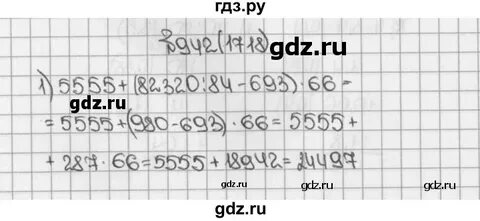 гдз.ру
№942(1718)
gdz.ru
1) 5555+(82320:84-693)·66=
=5555+(980-693)·66=5555+
+287·66=5555+18942=24497
gdz.ru
gdz.ru